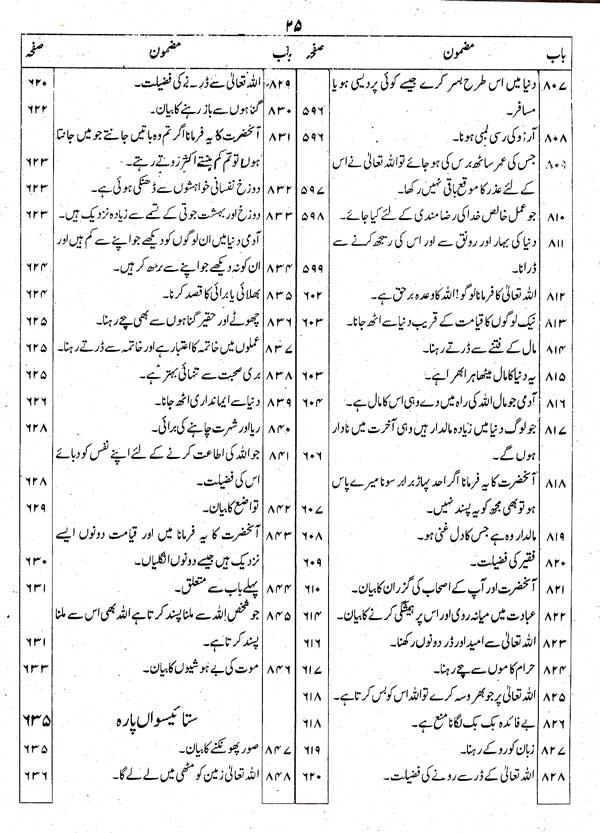 ۲۵
باب مضمون صفحہ
۸۰۷ دنیا میں اس طرح بسر کرے جیسے کوئی پردیسی ہو یا
مسافر۔ ۵۹۶
۸۰۸ آرزو کی رسی لمبی ہونا۔ ۵۹۶
۸۰۹ جس کی عمر ساٹھ برس کی ہو جائے تو اللہ تعالیٰ نے اس
کے لئے عذر کا موقع باقی نہیں رکھا۔ ۵۹۷
۸۱۰ جو عمل خالص خدا کی رضامندی کے لئے کیا جائے۔ ۵۹۸
۸۱۱ دنیا کی بہار اور رونق سے اور اس کی ریجھ کرنے سے
ڈرانا۔ ۵۹۹
۸۱۲ اللہ تعالیٰ کا فرمانا لوگو! اللہ کا وعدہ برحق ہے۔ ۶۰۲
۸۱۳ نیک لوگوں کا قیامت کے قریب دنیا سے اٹھ جانا۔ ۶۰۳
۸۱۴ مال کے فتنے سے ڈرتے رہنا۔
۸۱۵ یہ دنیا کا مال میٹھا ہرا بھرا ہے۔ ۶۰۳
۸۱۶ آدمی جو مال اللہ کی راہ میں دے وہی اس کا مال ہے۔ ۶۰۴
۸۱۷ جو لوگ دنیا میں زیادہ مالدار ہیں وہی آخرت میں نادار
ہوں گے۔ ۶۰۶
۸۱۸ آنحضرت کا یہ فرمانا اگر احد پہاڑ برابر سونا میرے پاس
ہو تو بھی مجھ کو یہ پسند نہیں۔ ۶۰۷
۸۱۹ مالدار وہ ہے جس کا دل غنی ہو۔ ۶۰۸
۸۲۰ فقیر کی فضیلت۔ ۶۰۹
۸۲۱ آنحضرت اور آپ کے اصحاب کی گزران کا بیان۔ ۶۱۰
۸۲۲ عبادت میں میانہ روی اور اس پر ہمیشگی کرنے کا بیان۔ ۶۱۴
۸۲۳ اللہ تعالیٰ سے امید اور ڈر دونوں رکھنا۔ ۶۱۶
۸۲۴ حرام کاموں سے بچے رہنا۔ ۶۱۷
۸۲۵ اللہ تعالیٰ پر جو بھروسہ کرے تو اللہ اس کو بس کرتا ہے۔ ۶۱۸
۸۲۶ بے فائدہ بک بک لگانا منع ہے۔ ۶۱۸
۸۲۷ زبان کو روکے رہنا۔ ۶۱۹
۸۲۸ اللہ تعالیٰ کے ڈر سے رونے کی فضیلت۔ ۶۲۰
باب مضمون صفحہ
۸۲۹ اللہ تعالیٰ سے ڈرنے کی فضیلت۔ ۶۲۰
۸۳۰ گناہوں سے باز رہنے کا بیان۔ ۶۲۲
۸۳۱ آنحضرت کا یہ فرمانا اگر تم وہ باتیں جانتے جو میں جانتا
ہوں تو تم کم ہنستے اکثر روتے رہتے۔ ۶۲۳
۸۳۲ دوزخ نفسانی خواہشوں سے ڈھنکی ہوئی ہے۔ ۶۲۳
۸۳۳ دوزخ اور بہشت جوتی کے تسمے سے زیادہ نزدیک ہیں۔ ۶۲۳
آدمی دنیا میں ان لوگوں کو دیکھے جو اپنے سے کم ہیں اور
۸۳۴ ان کو نہ دیکھے جو اپنے سے بڑھ کر ہیں۔ ۶۲۴
۸۳۵ بھلائی یا برائی کا قصد کرنا۔ ۶۲۴
۸۳۶ چھوٹے اور حقیر گناہوں سے بھی بچے رہنا۔ ۶۲۵
۸۳۷ عملوں میں خاتمہ کا اعتبار ہے اور خاتمہ سے ڈرتے رہنا۔ ۶۲۵
۸۳۸ بری صحبت سے تنہائی بہتر ہے۔ ۶۲۵
۸۳۹ دنیا سے ایمانداری اٹھ جانا۔ ۶۲۶
۸۴۰ ریا اور شہرت چاہنے کی برائی۔ ۶۲۸
۸۴۱ جو اللہ کی اطاعت کرنے کے لئے اپنے نفس کو دبائے
اس کی فضیلت۔ ۶۲۸
۸۴۲ تواضع کا بیان۔ ۶۲۹
۸۴۳ آنحضرت کا یہ فرمانا میں اور قیامت دونوں ایسے
نزدیک ہیں جیسے دونوں انگلیاں۔ ۶۳۰
۸۴۴ پہلے باب سے متعلق۔ ۶۳۱
۸۴۵ جو شخص اللہ سے ملنا پسند کرتا ہے اللہ بھی اس سے ملنا
پسند کرتا ہے۔ ۶۳۱
۸۴۶ موت کی بے ہوشیوں کا بیان۔ ۶۳۳
ستائیسواں پارہ ۶۳۵
۸۴۷ صور پھونکنے کا بیان۔ ۶۳۵
۸۴۸ اللہ تعالیٰ زمین کو مٹھی میں لے لے گا۔ ۶۳۶